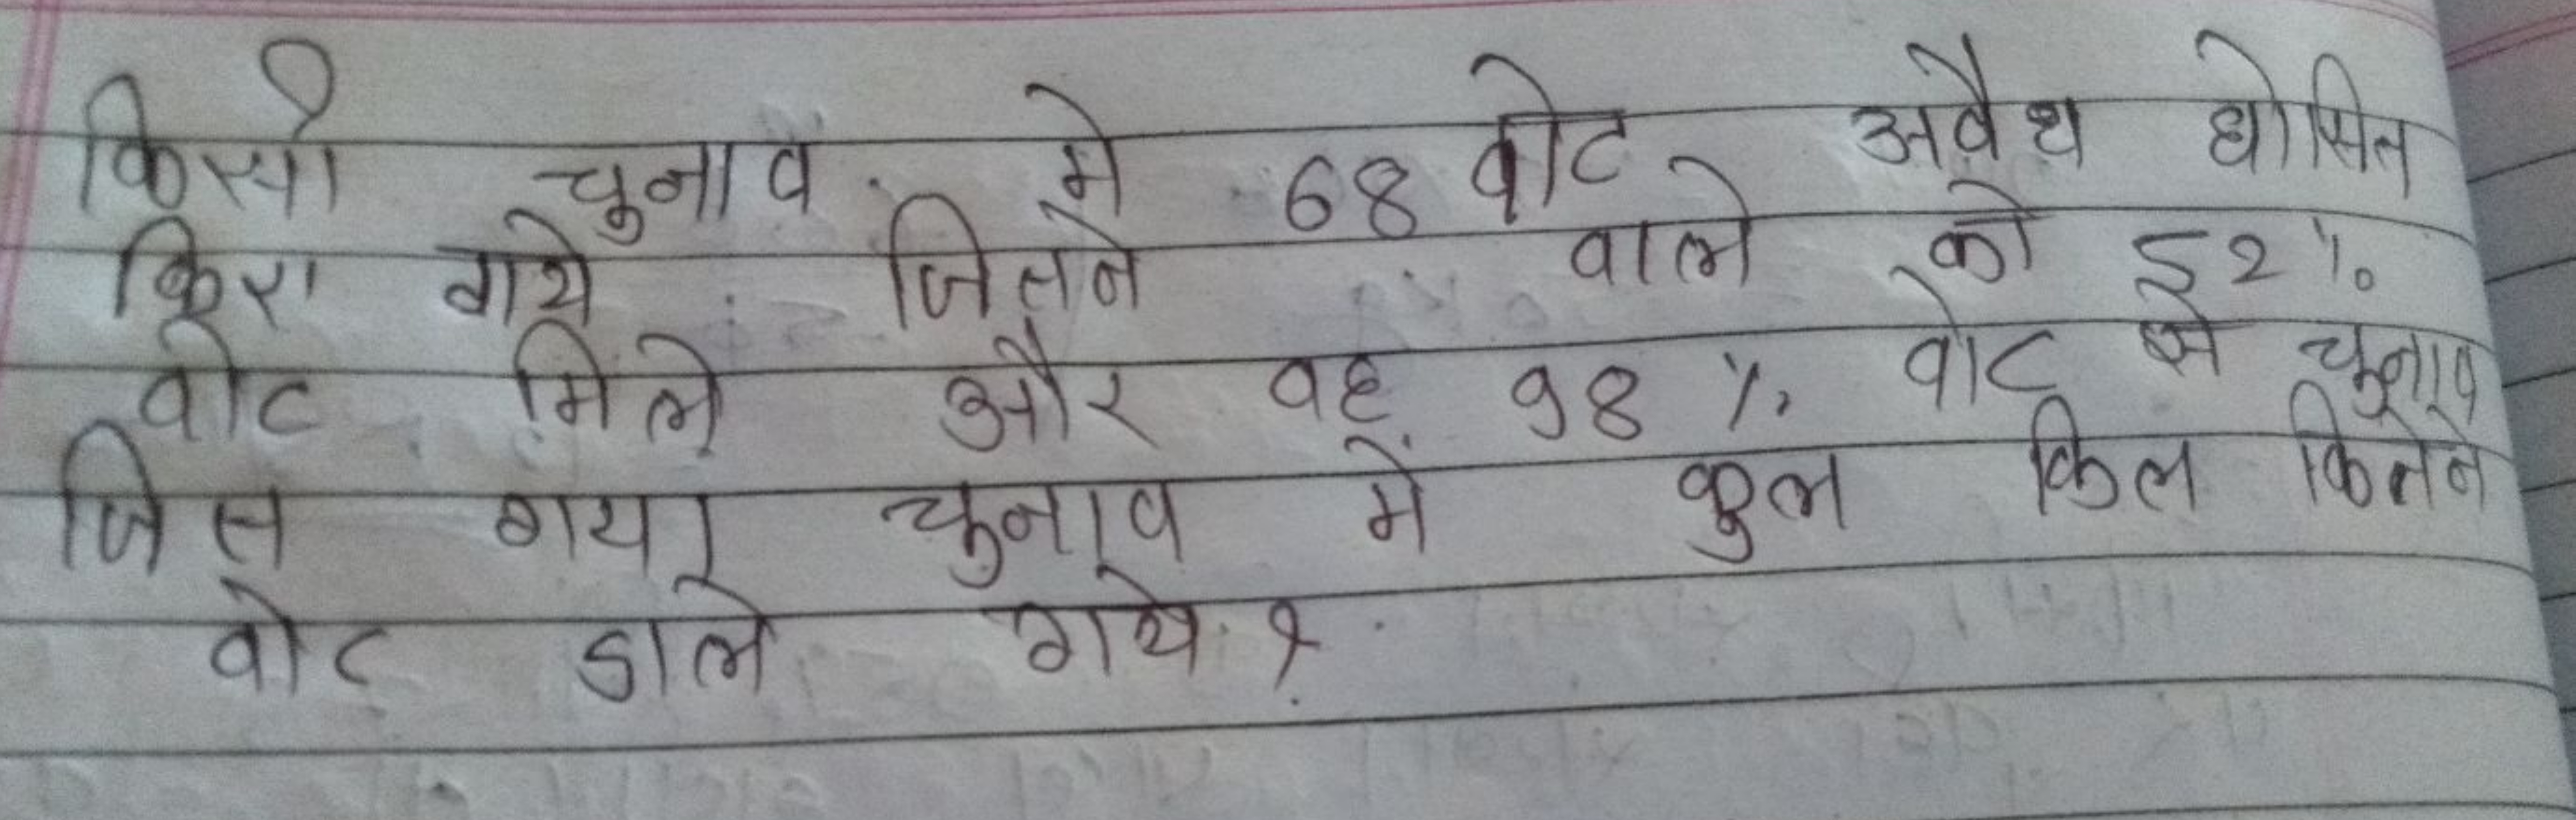 किसी चुनाव में 68 वोट अवैध घोसित
किए गये जितने वाले को 52%
वोट मिले और वह 98 % वोट से चुनाव
जित गया चुनाव में कुल किल कितने
वोट डाले गये ?